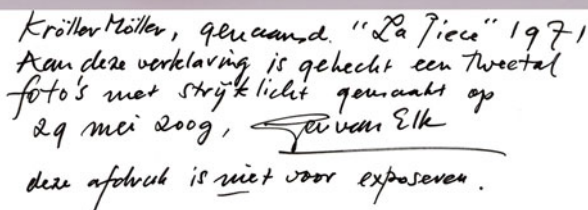 Kröller Möller, genaamd. "La Piece" 1971
Aan deze verklaring is gehecht een tweetal
foto's met strijklicht gemaakt op
29 mei 2009, Ger van Elk
deze afdruk is niet voor exposeren.